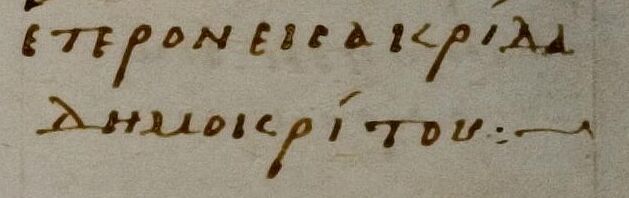 ετερον εις ακρίδα
δημοκρίτου :—